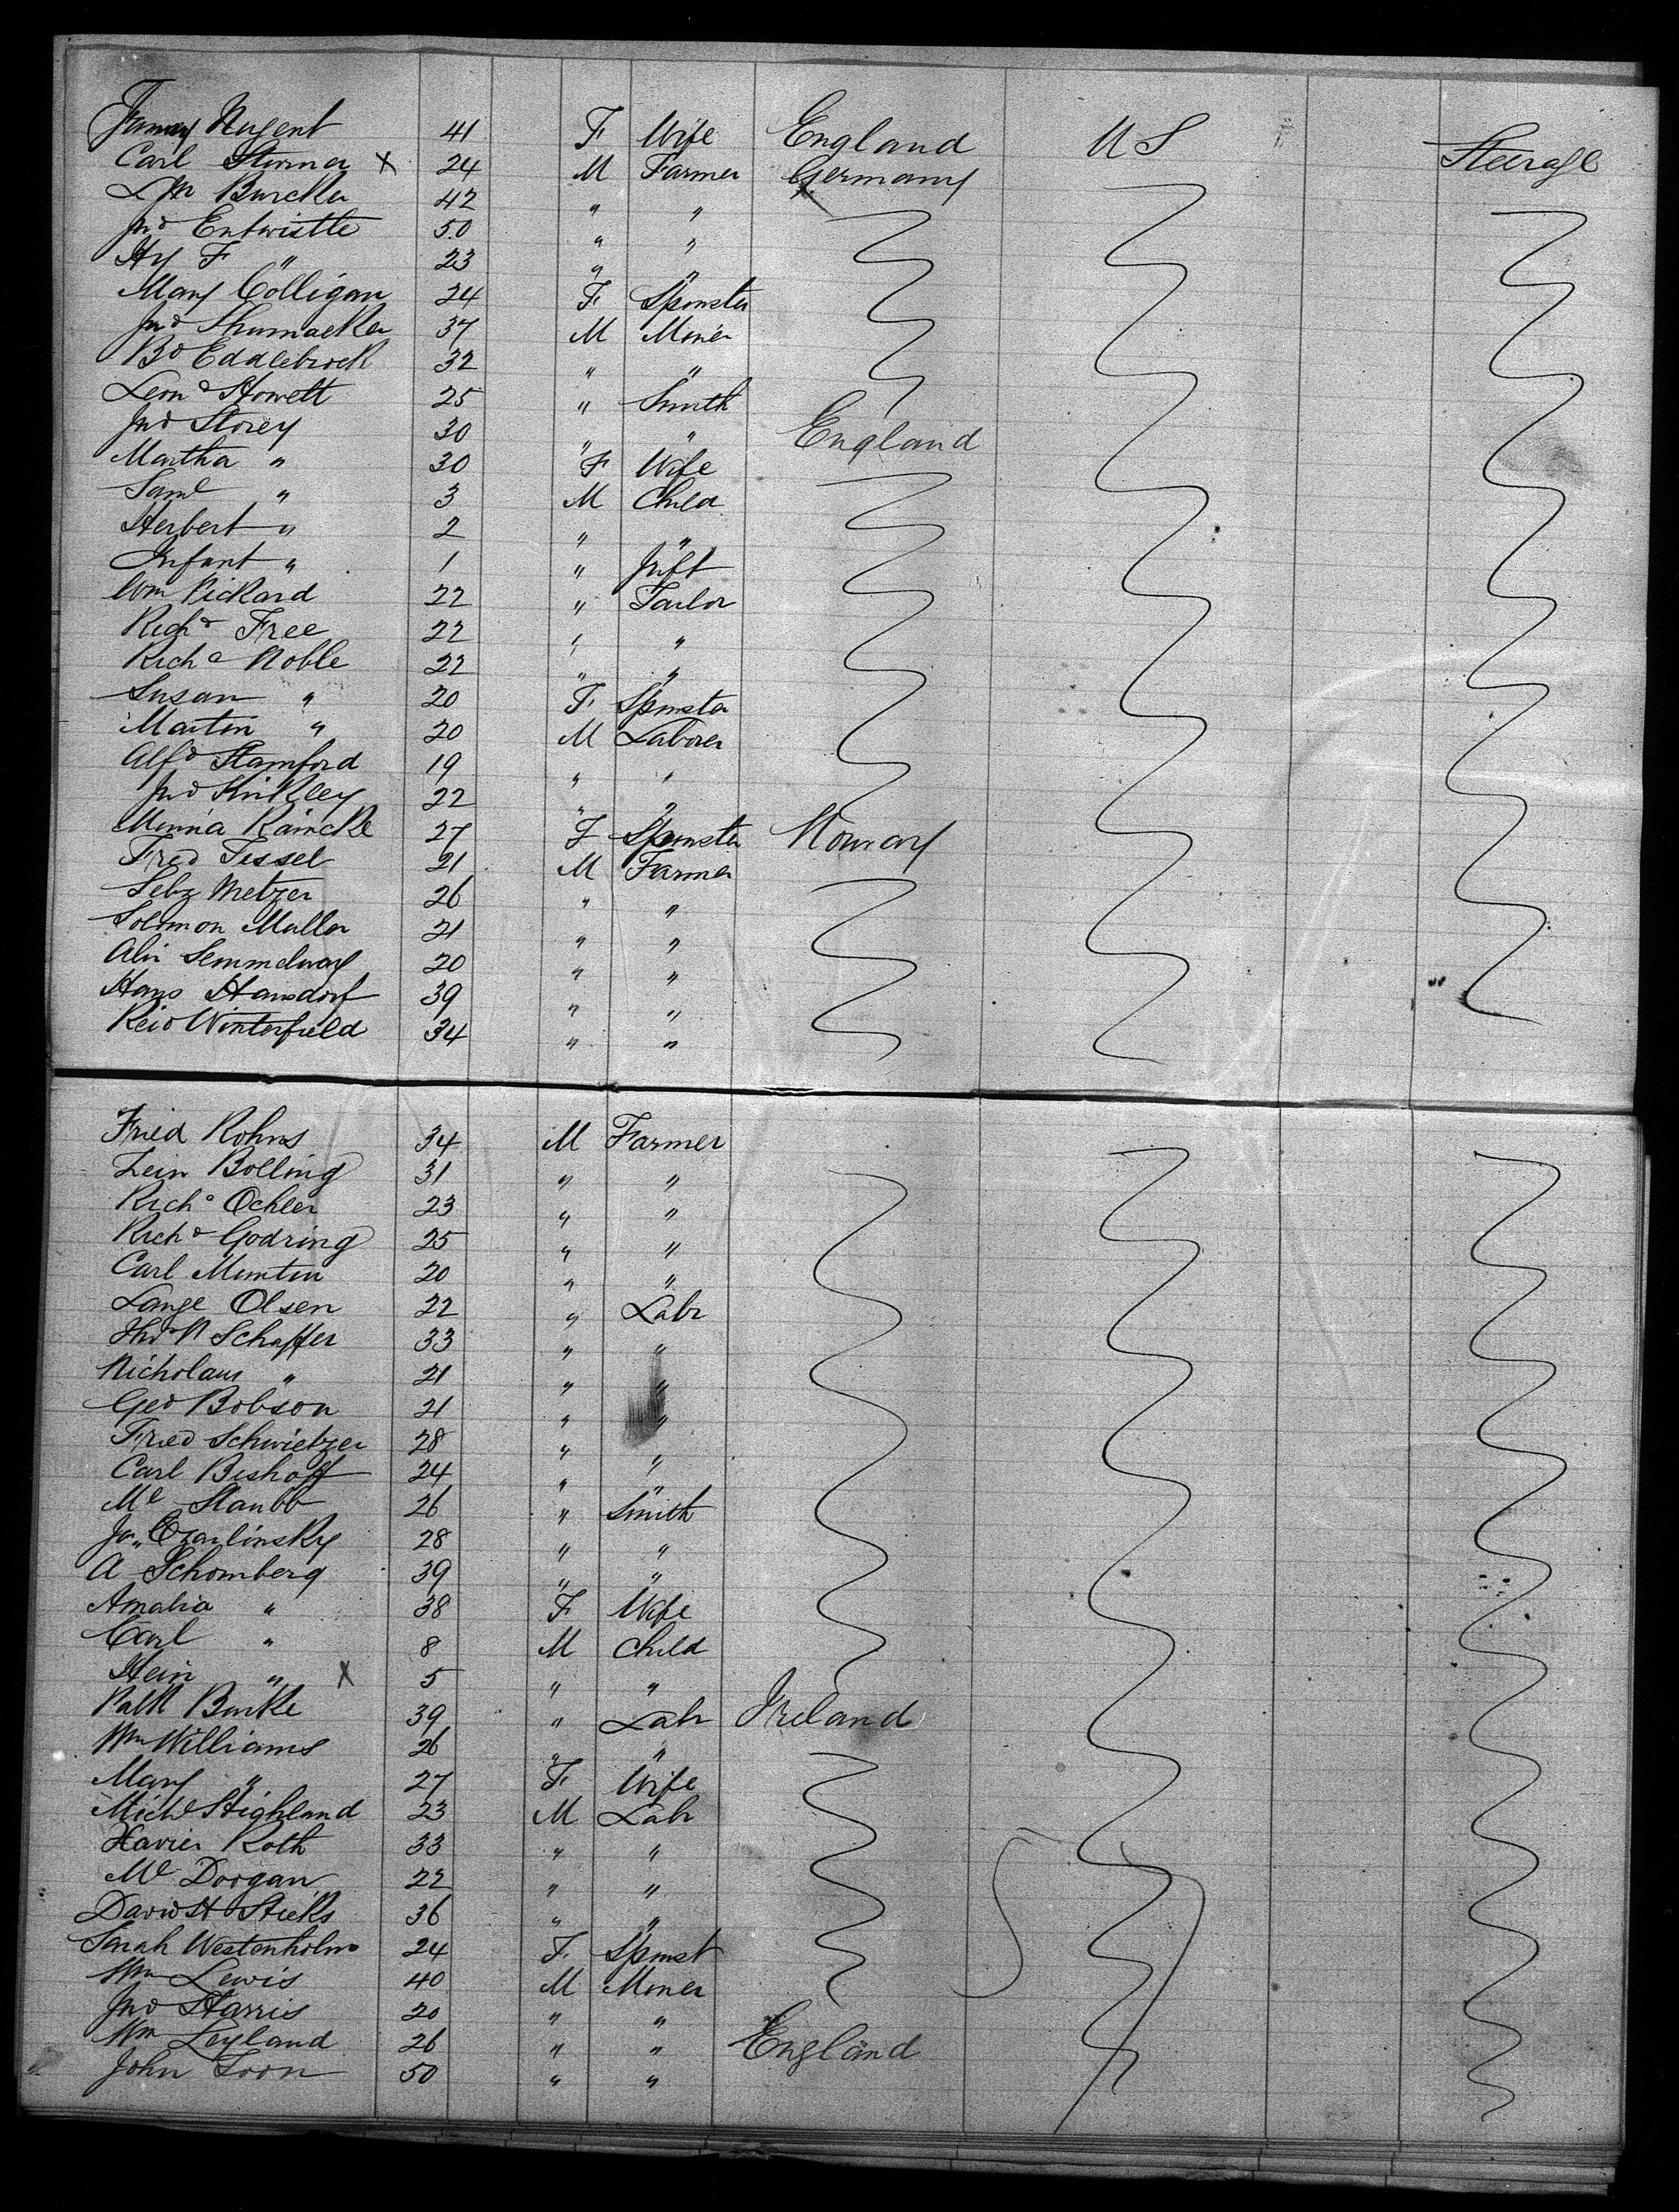 Nugent 41 F Wife England U S Steerage
Carl Sturner X 24 M Farmer Germany
Burcker 42 " "
Jno Entwistle 50 " "
Hy F " 23 " "
Mary Colligan 24 F Spinster
Jno Shumacker 37 M Miner
Bd Eddlebrock 32 " "
Leond Howett 25 " Smith
Jno Storey 30 " " England
Martha " 30 F Wife
Saml " 3 M Child
Herbert " 2 " "
Infant " 1 " Inft
Wm Pickard 22 " Tailor
Richd Free 22 " "
Richd Noble 22 " "
Susan " 20 F Spinster
Martin " 20 M Laborer
Alfd Stamford 19 " "
Jno Kirkley 22 " "
Minna Raincke 27 F Spinster Norway
Fred Tessel 21 M Farmer
Metzer 26 " "
Solomon Muller 21 " "
Semmelway 20 " "
Hans Hansdorf 39 " "
Winterfield 34 " "
Fried Rohns 34 M Farmer
Hein Bolling 31 " "
Richd Ochler 23 " "
Richd Godring 25 " "
Carl Muntin 20 " "
Lange Olsen 22 " Labr
Schaffer 33 " "
Nicholaus " 21 " "
Geo Bobson 21 " "
Fred Schwietzer 28 " "
Carl Bishoff 24 " "
Ml Staubb 26 " Smith
Czarlinsky 28 " "
A Schomberg 39 " "
Amalia " 38 F Wife
Carl " 8 M Child
Hein " X 5 " "
Patk Burke 39 " Labr Ireland
Wm Williams 26 " "
Mary " 27 F Wife
Michl Highland 23 M Labr
Xavier Roth 33 " "
Ml Dorgan 22 " "
David H Sticks 36 " "
Sarah Westenholm 24 F Spinst
Wm Lewis 40 M Miner
Jno Harris 20 " "
Wm Leyland 26 " " England
John Toon 50 " "